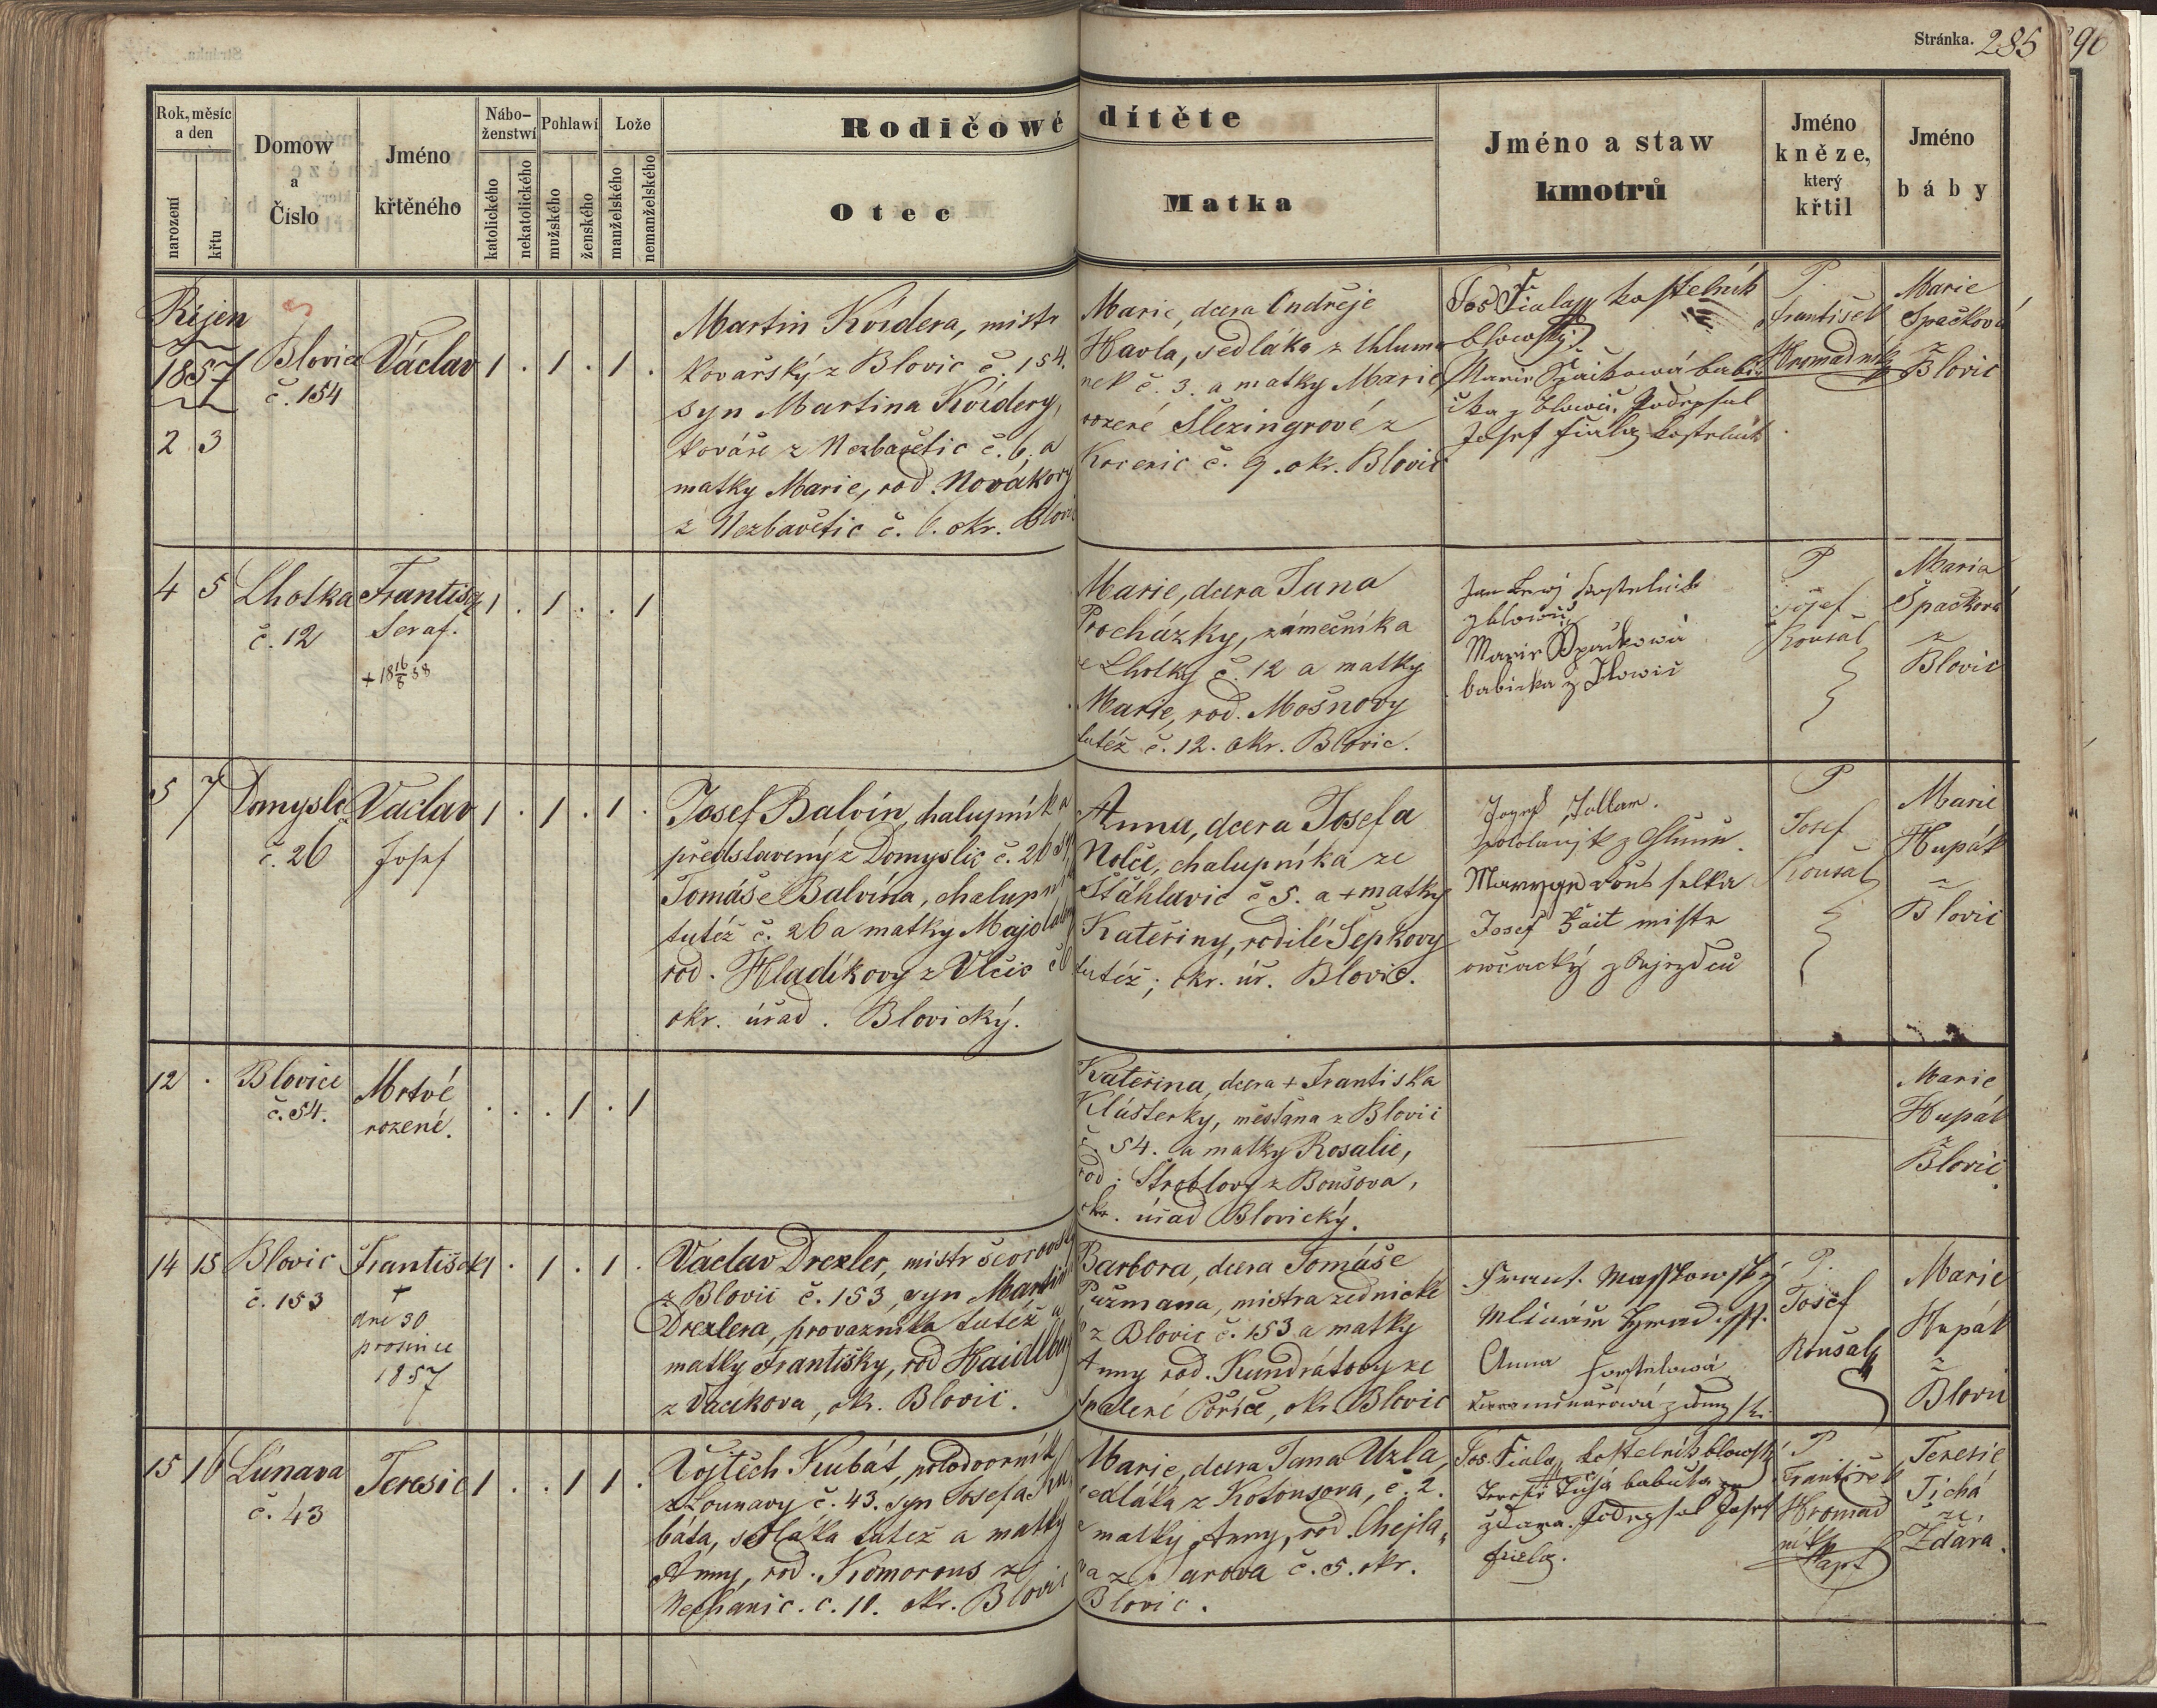 Stránka. 285
96
Rok, měsíc
a den
narození
křtu
Domow
a
Číslo
Jméno
křtěného
Nábo-
ženstwí
katolického
nekatolického
Pohlawí
mužského
ženského
Lože
manželského
nemanželského
Rodičowé dítěte
Otec
Matka
Jméno a staw
kmotrů
Jméno
kněze,
který
křtil
Jméno
báby
Říjen
1857
2 3
Blovice
č. 154
Václav
1 . 1 . 1 .
Martin Kvídera, mistr
kovářský z Blovic č. 154.
syn Martina Kvídery,
kováře z Nezbavětic č. 6. a
matky Marie, rod. Novákovy
z Nezbavětic č. 6. okr. Blovic
Marie, dcera Ondřeje
Havla, sedláka z Chluma
nek č. 3. a matky Marie,
rozené Šlezingrové z
č. 9. okr. Blovic
Jos Fiala kostelník
blowský
Marie Špačkowá babi
čka z Blowic. Podepsal
Josef Fiala kostelník
P.
František
Hromadník
Marie
Špačková
z
Blovic
4 5
Lhotka
č. 12
Františ
Seraf.
+ 18 16/8 58
1 . 1 . . 1
Marie, dcera Jana
Procházky, zámečníka
ze Lhotky č. 12 a matky
Marie, rod. Mošnovy
tutéž č. 12. okr. Blovic.
Jan kostelník
z blowic
Marie Špačkowá
babicka z Blowic
P
Josef
Roušal
Maria
Špačková
z
Blovic
5 7
Domyslic
č. 26
Václav
Josef
1 . 1 . 1 .
Josef Balvín, chalupník a
představený z Domyslic č. 26 syn
Tomáše Balvína, chalupníka
tutéž č. 26 a matky Majdaleny
rod. Hladíkovy z Vlčic č 6
okr. úřad. Blovický.
Anna, dcera Josefa
Nolče, chalupníka ze
Štáhlavic č 5. a + matky
Kateřiny, rodilé Šepkovy
tutéž; okr. úř. Blovic.
Josef
Josef mistr
owčacký z
P
Josef
Roušal
Marie
Hupák
z
Blovic
12 .
Blovice
č. 54.
Mrtvé
rozené.
. . . 1 . 1
Kateřina, dcera + Františka
Klášterky, měšťana z Blovic
č. 54. a matky Rosalie,
rod. Štroblovy z Boušova,
okr. úřad Blovický.
Marie
Hupák
z
Blovic.
14 15
Blovic
č. 153
František
+
dne 30
prosince
1857
1 . 1 . 1 .
Václav Drexler, mistr ševcovský
z Blovic č. 153, syn Martina
Drexlera, provazníka tutéž a
matky Františky, rod
z Vacíkova, ok. Blovic.
Barbora, dcera Tomáše
Pužmana, mistra zednické
z Blovic č. 153 a matky
Anny rod. Kundrátovy ze
Spálené Poříčí, okr. Blovic
Frant.
Mlinář
Anna
P.
Josef
Roušal
Marie
Hupák
z
Blovic
15 16
Lúnava
č. 43
Teresie
1 . . 1 1 .
Vojtěch Kubát, polodvorník
z Lounavy č. 43. syn Josefa Ku
báta, sedláka tutéž a matky
Anny, rod. Komorous z
Nechanic. č. 11. okr. Blovic
Marie, dcera Jana Uzla,
sedláka z Kotousova, č. 2.
matky Anny, rod. Chejla
va ze Žarova č. 5. okr.
Blovic.
Jos. Fiala kostelník blowský
Teresie Tichá babička ze
Zdara. Podepsal Josef
Fiala.
P
František
Hromad
ník
kapl
Teresie
Tichá
ze
Ždára.